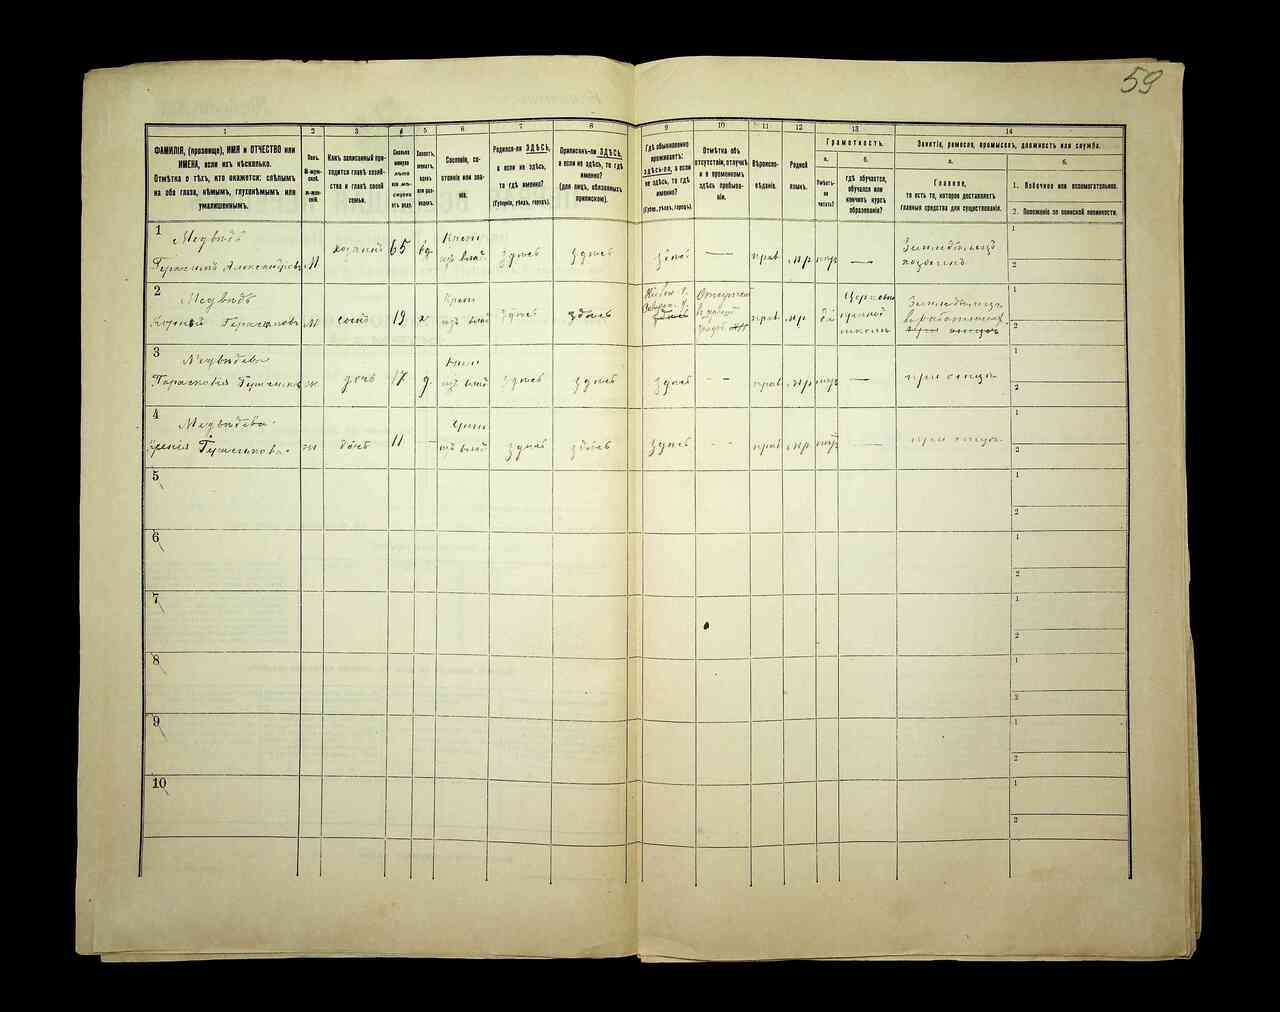 59
1 2 3 4 5 6 7 8 9 10 11 12 13 14
ФАМИЛІЯ, (прозвище), ИМЯ и ОТЧЕСТВО или
ИМЕНА, если ихъ нѣсколько.
Отмѣтка о тѣхъ, кто окажется: слѣпымъ
на оба глаза, нѣмымъ, глухонѣмымъ или
умалишеннымъ.
Полъ.
М-муж-
ской.
Ж-жен-
скій.
Какъ записанный при-
ходится главѣ хозяй-
ства и главѣ своей
семьи.
Сколько
минуло
лѣтъ
или мѣ-
сяцевъ
отъ роду.
Холостъ,
женатъ,
вдовъ
или раз-
веденъ.
Сословіе, со-
стояніе или зва-
ніе.
Родился-ли ЗДѢСЬ,
а если не здѣсь,
то гдѣ именно?
(Губернія, уѣздъ, городъ).
Приписанъ-ли ЗДѢСЬ,
а если не здѣсь, то гдѣ
именно?
(для лицъ, обязанныхъ
припискою).
Гдѣ обыкновенно
проживаетъ:
ЗДѢСЬ-ЛИ, а если
не здѣсь, то гдѣ
именно?
(Губер., уѣздъ, городъ).
Отмѣтка объ
отсутствіи, отлучкѣ
и о временномъ
здѣсь пребыва-
ніи.
Вѣроиспо-
вѣданіе.
Родной
языкъ.
Грамотность.
а.
Умѣетъ-
ли
читать?
б.
гдѣ обучается,
обучался или
кончилъ курсъ
образованія?
Занятіе, ремесло, промыселъ, должность или служба.
а.
Главное,
то есть то, которое доставляетъ
главныя средства для существованія.
б.
1. Побочное или вспомогательное.
2. Положеніе по воинской повинности.
1
Медвѣдь
Герасимъ Александровъ М хозяинъ 65 вд. здѣсь здѣсь здѣсь — прав —
Земледѣлецъ
хозяинъ
1
2
2
Медвѣдь
Корній Герасимовъ М сынъ 19 х здѣсь здѣсь здѣсь прав да
школѣ
Земледѣлецъ
1
2
3
Медвѣдева
Параскевія Ж дочь 17 д. здѣсь здѣсь здѣсь - - прав — при отцѣ
1
2
4
Медвѣдева
Герасимова Ж дочь 11 — здѣсь здѣсь здѣсь - - прав — при отцѣ
1
2
5
1
2
6
1
2
7
1
2
8
1
2
9
1
2
10
1
2